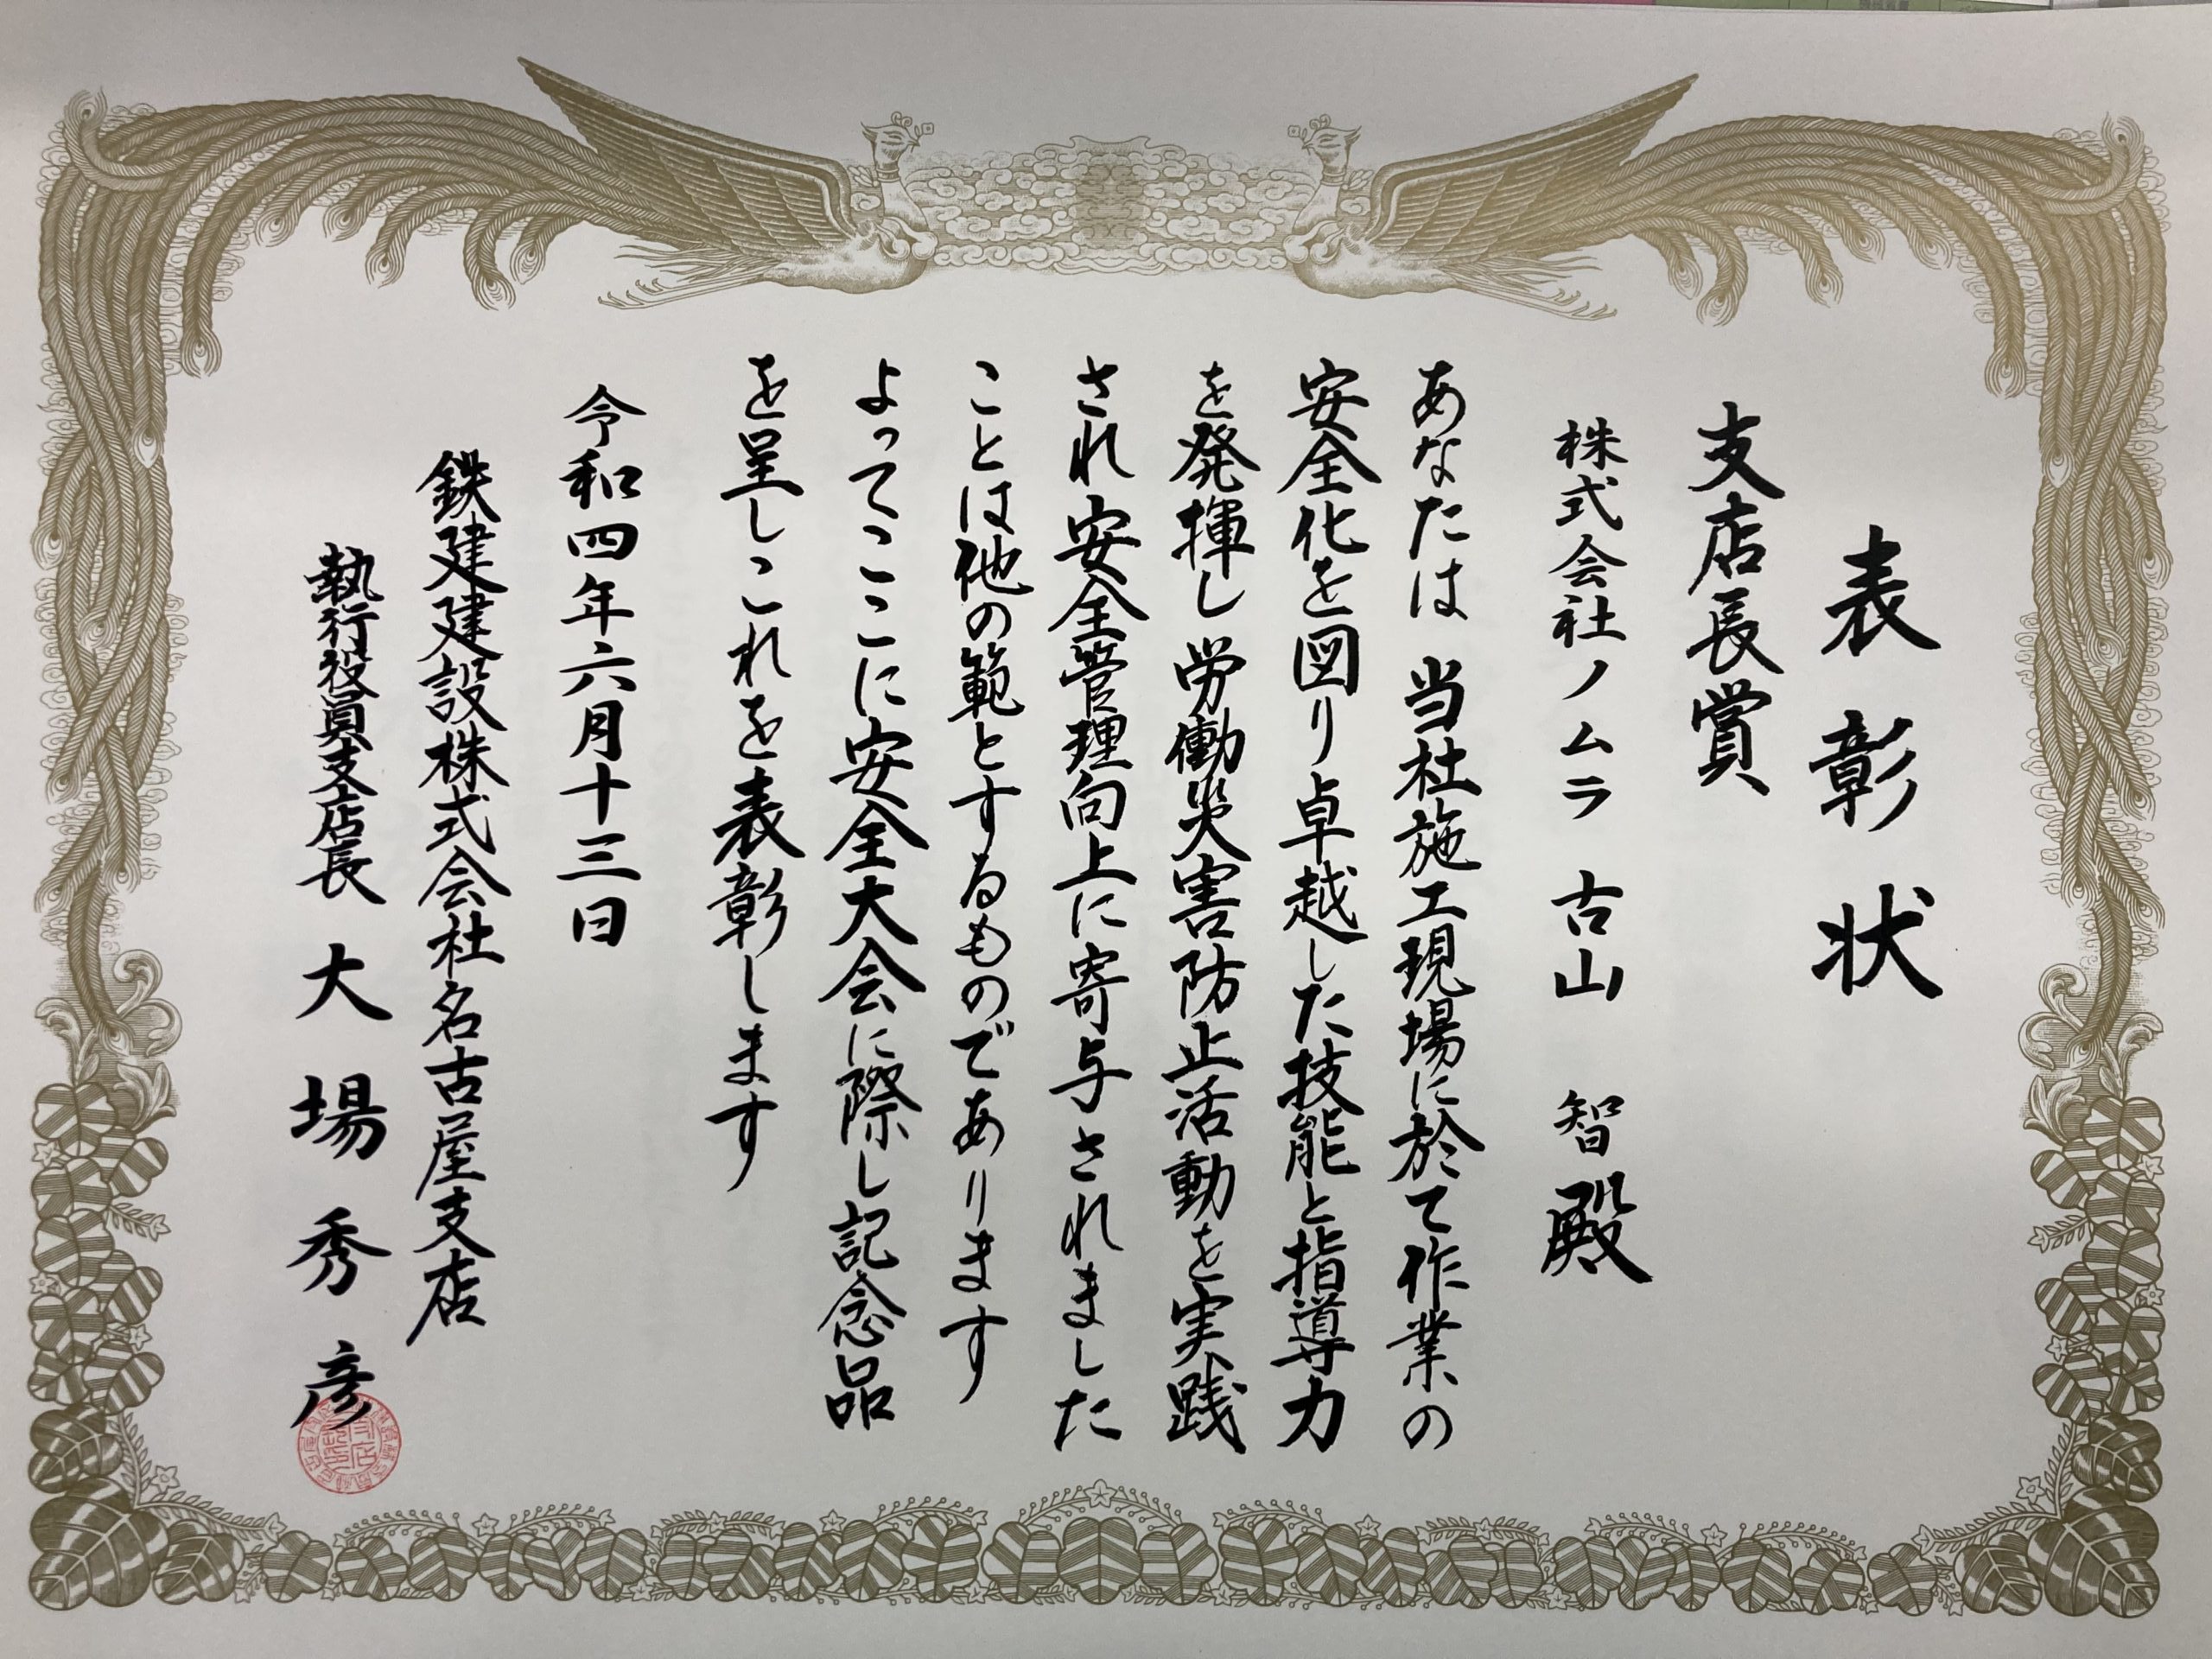 表彰状
支店長賞
株式会社ノムラ 古山 智殿
あなたは 当社施工現場に於て作業の
安全化を図り卓越した技能と指導力
を発揮し 労働災害防止活動を実践
され安全管理向上に寄与されました
ことは他の範とするものであります
よってここに安全大会に際し記念品
を呈しこれを表彰します
令和四年六月十三日
鉄建建設株式会社名古屋支店
執行役員支店長 大場秀彦